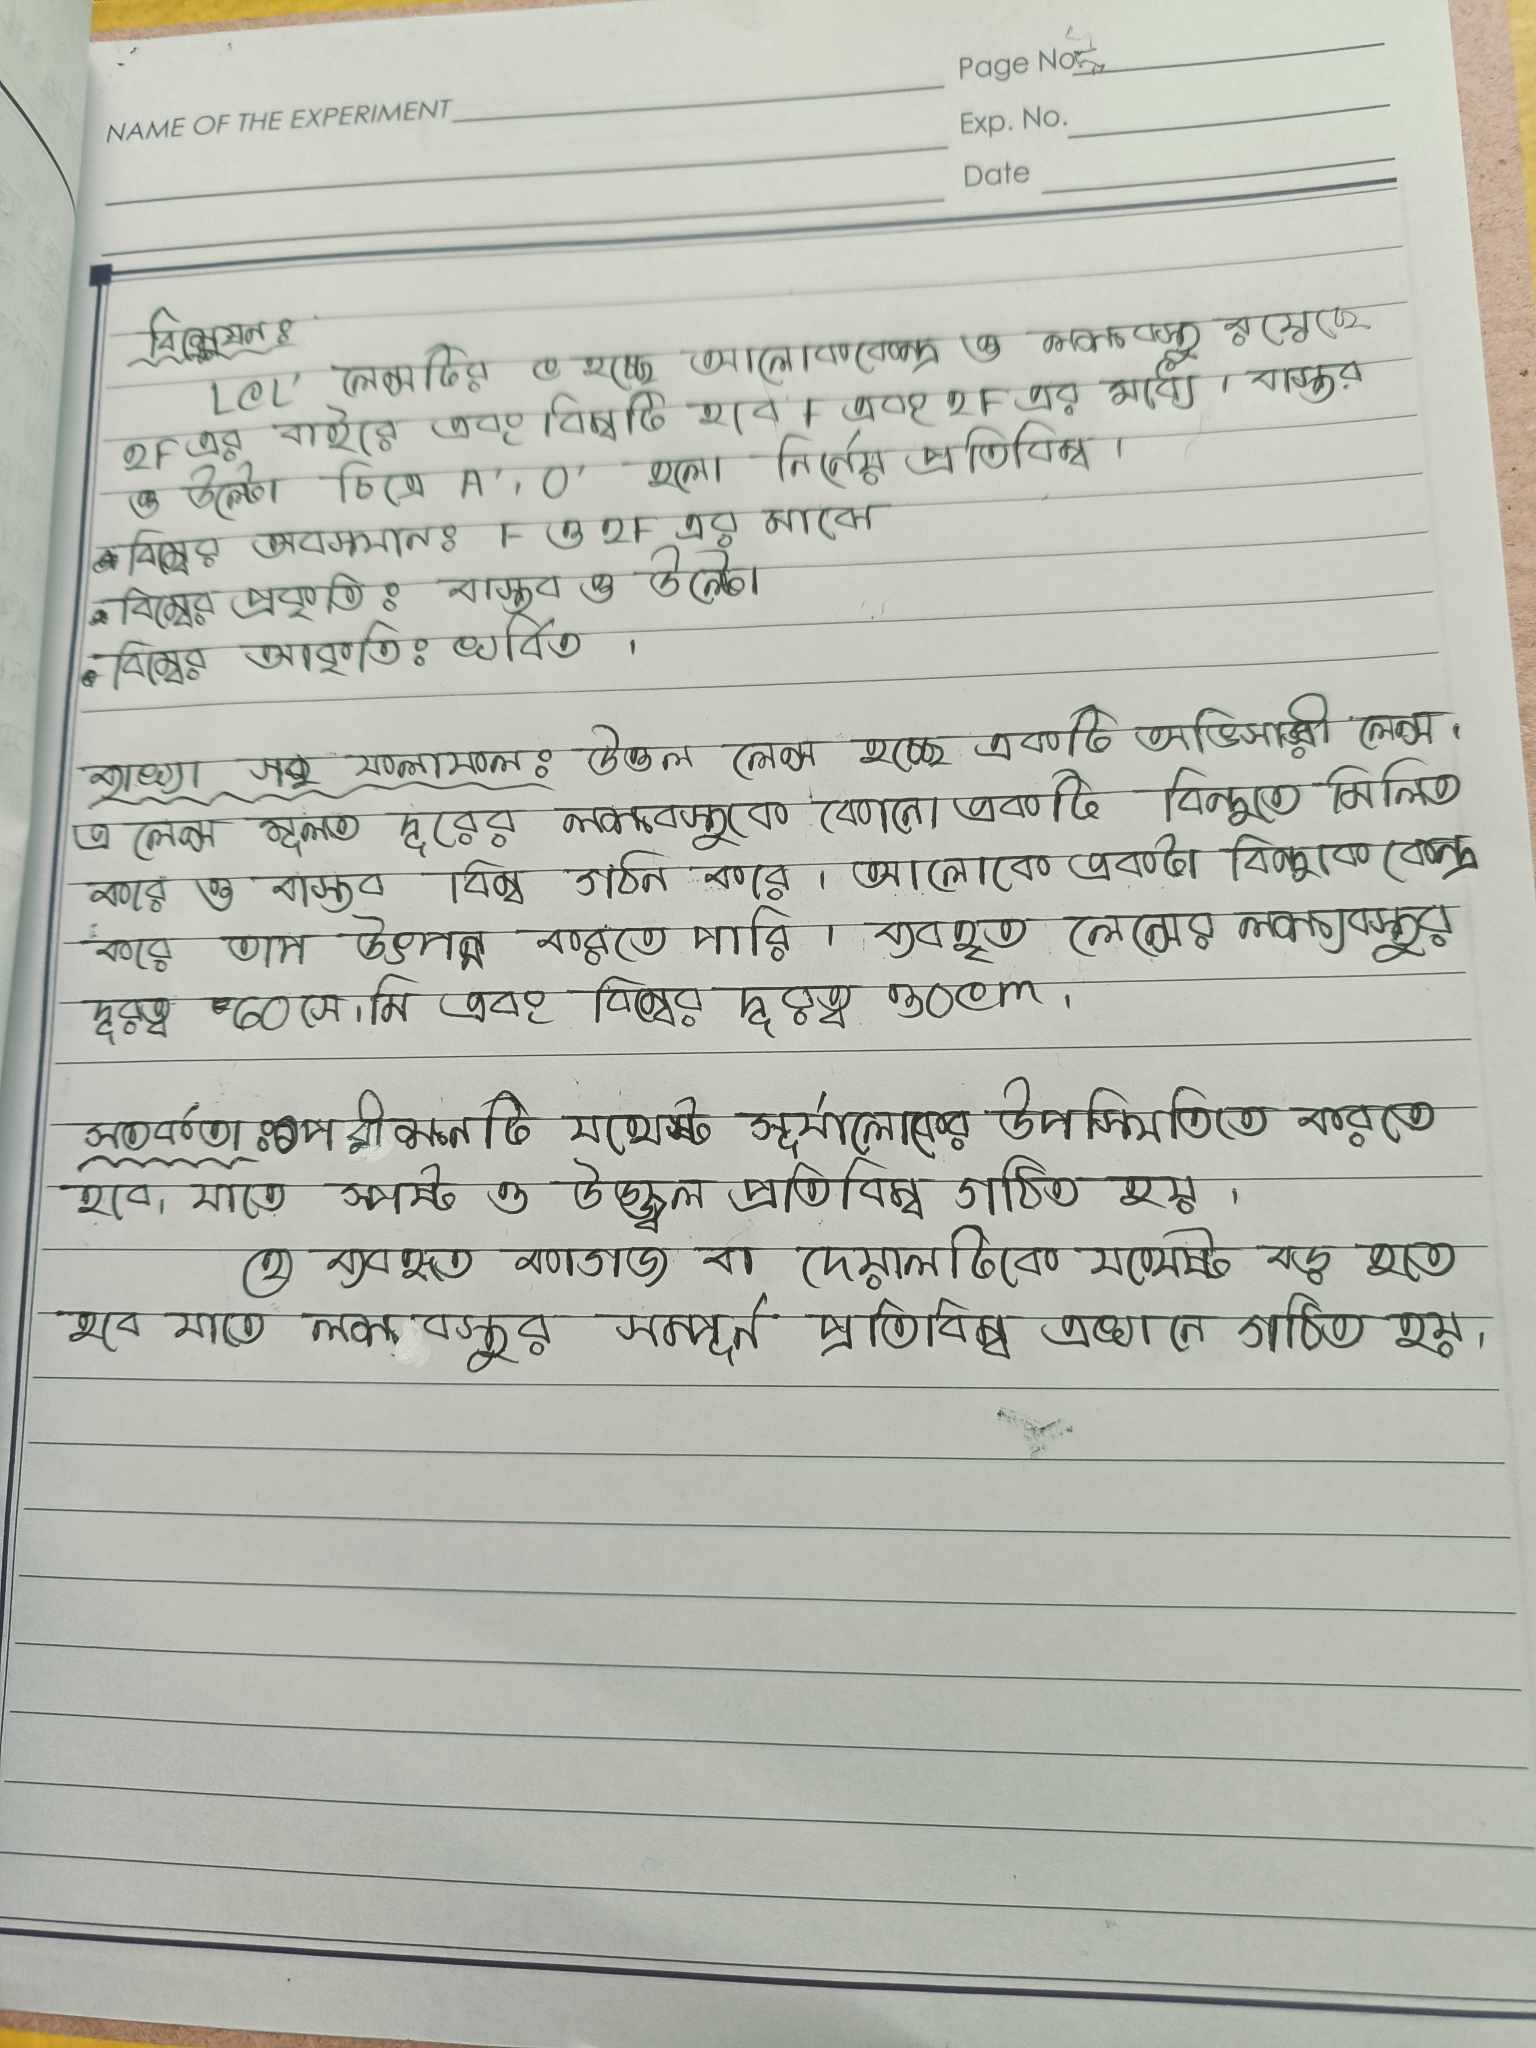 Page No.
NAME OF THE EXPERIMENT
Exp. No.
Date
বিশ্লেষনঃ
LOL' লেন্সটির O হচ্ছে আলোককেন্দ্র ও লক্ষ্যবস্তু রয়েছে
2F এর বাইরে এবং বিম্বটি হবে F এবং 2F এর মধ্যে। বাস্তব
ও উল্টো চিত্রে A', O' হলো নির্নেয় প্রতিবিম্ব।
• বিম্বের অবস্থানঃ F ও 2F এর মাঝে
• বিম্বের প্রকৃতিঃ বাস্তব ও উল্টো
• বিম্বের আকৃতিঃ খর্বিত।
ব্যাখ্যা সহ ফলাফলঃ উত্তল লেন্স হচ্ছে একটি অভিসারী লেন্স।
এ লেন্স মূলত দূরের লক্ষ্যবস্তুকে কোনো একটি বিন্দুতে মিলিত
করে ও বাস্তব বিম্ব গঠন করে। আলোকে একটা বিন্দুকে কেন্দ্র
করে তাপ উৎপন্ন করতে পারি। ব্যবহৃত লেন্সের লক্ষ্যবস্তুর
দূরত্ব 60 সে.মি এবং বিম্বের দূরত্ব ৩0cm।
সতর্কতাঃ পরীক্ষনটি যথেষ্ট সূর্যালোকের উপস্থিতিতে করতে
হবে, যাতে স্পষ্ট ও উজ্জ্বল প্রতিবিম্ব গঠিত হয়।
ব্যবহৃত কাগজ বা দেয়ালটিকে যথেষ্ট বড় হতে
হবে যাতে লক্ষ্যবস্তুর সম্পূর্ন প্রতিবিম্ব এখানে গঠিত হয়।